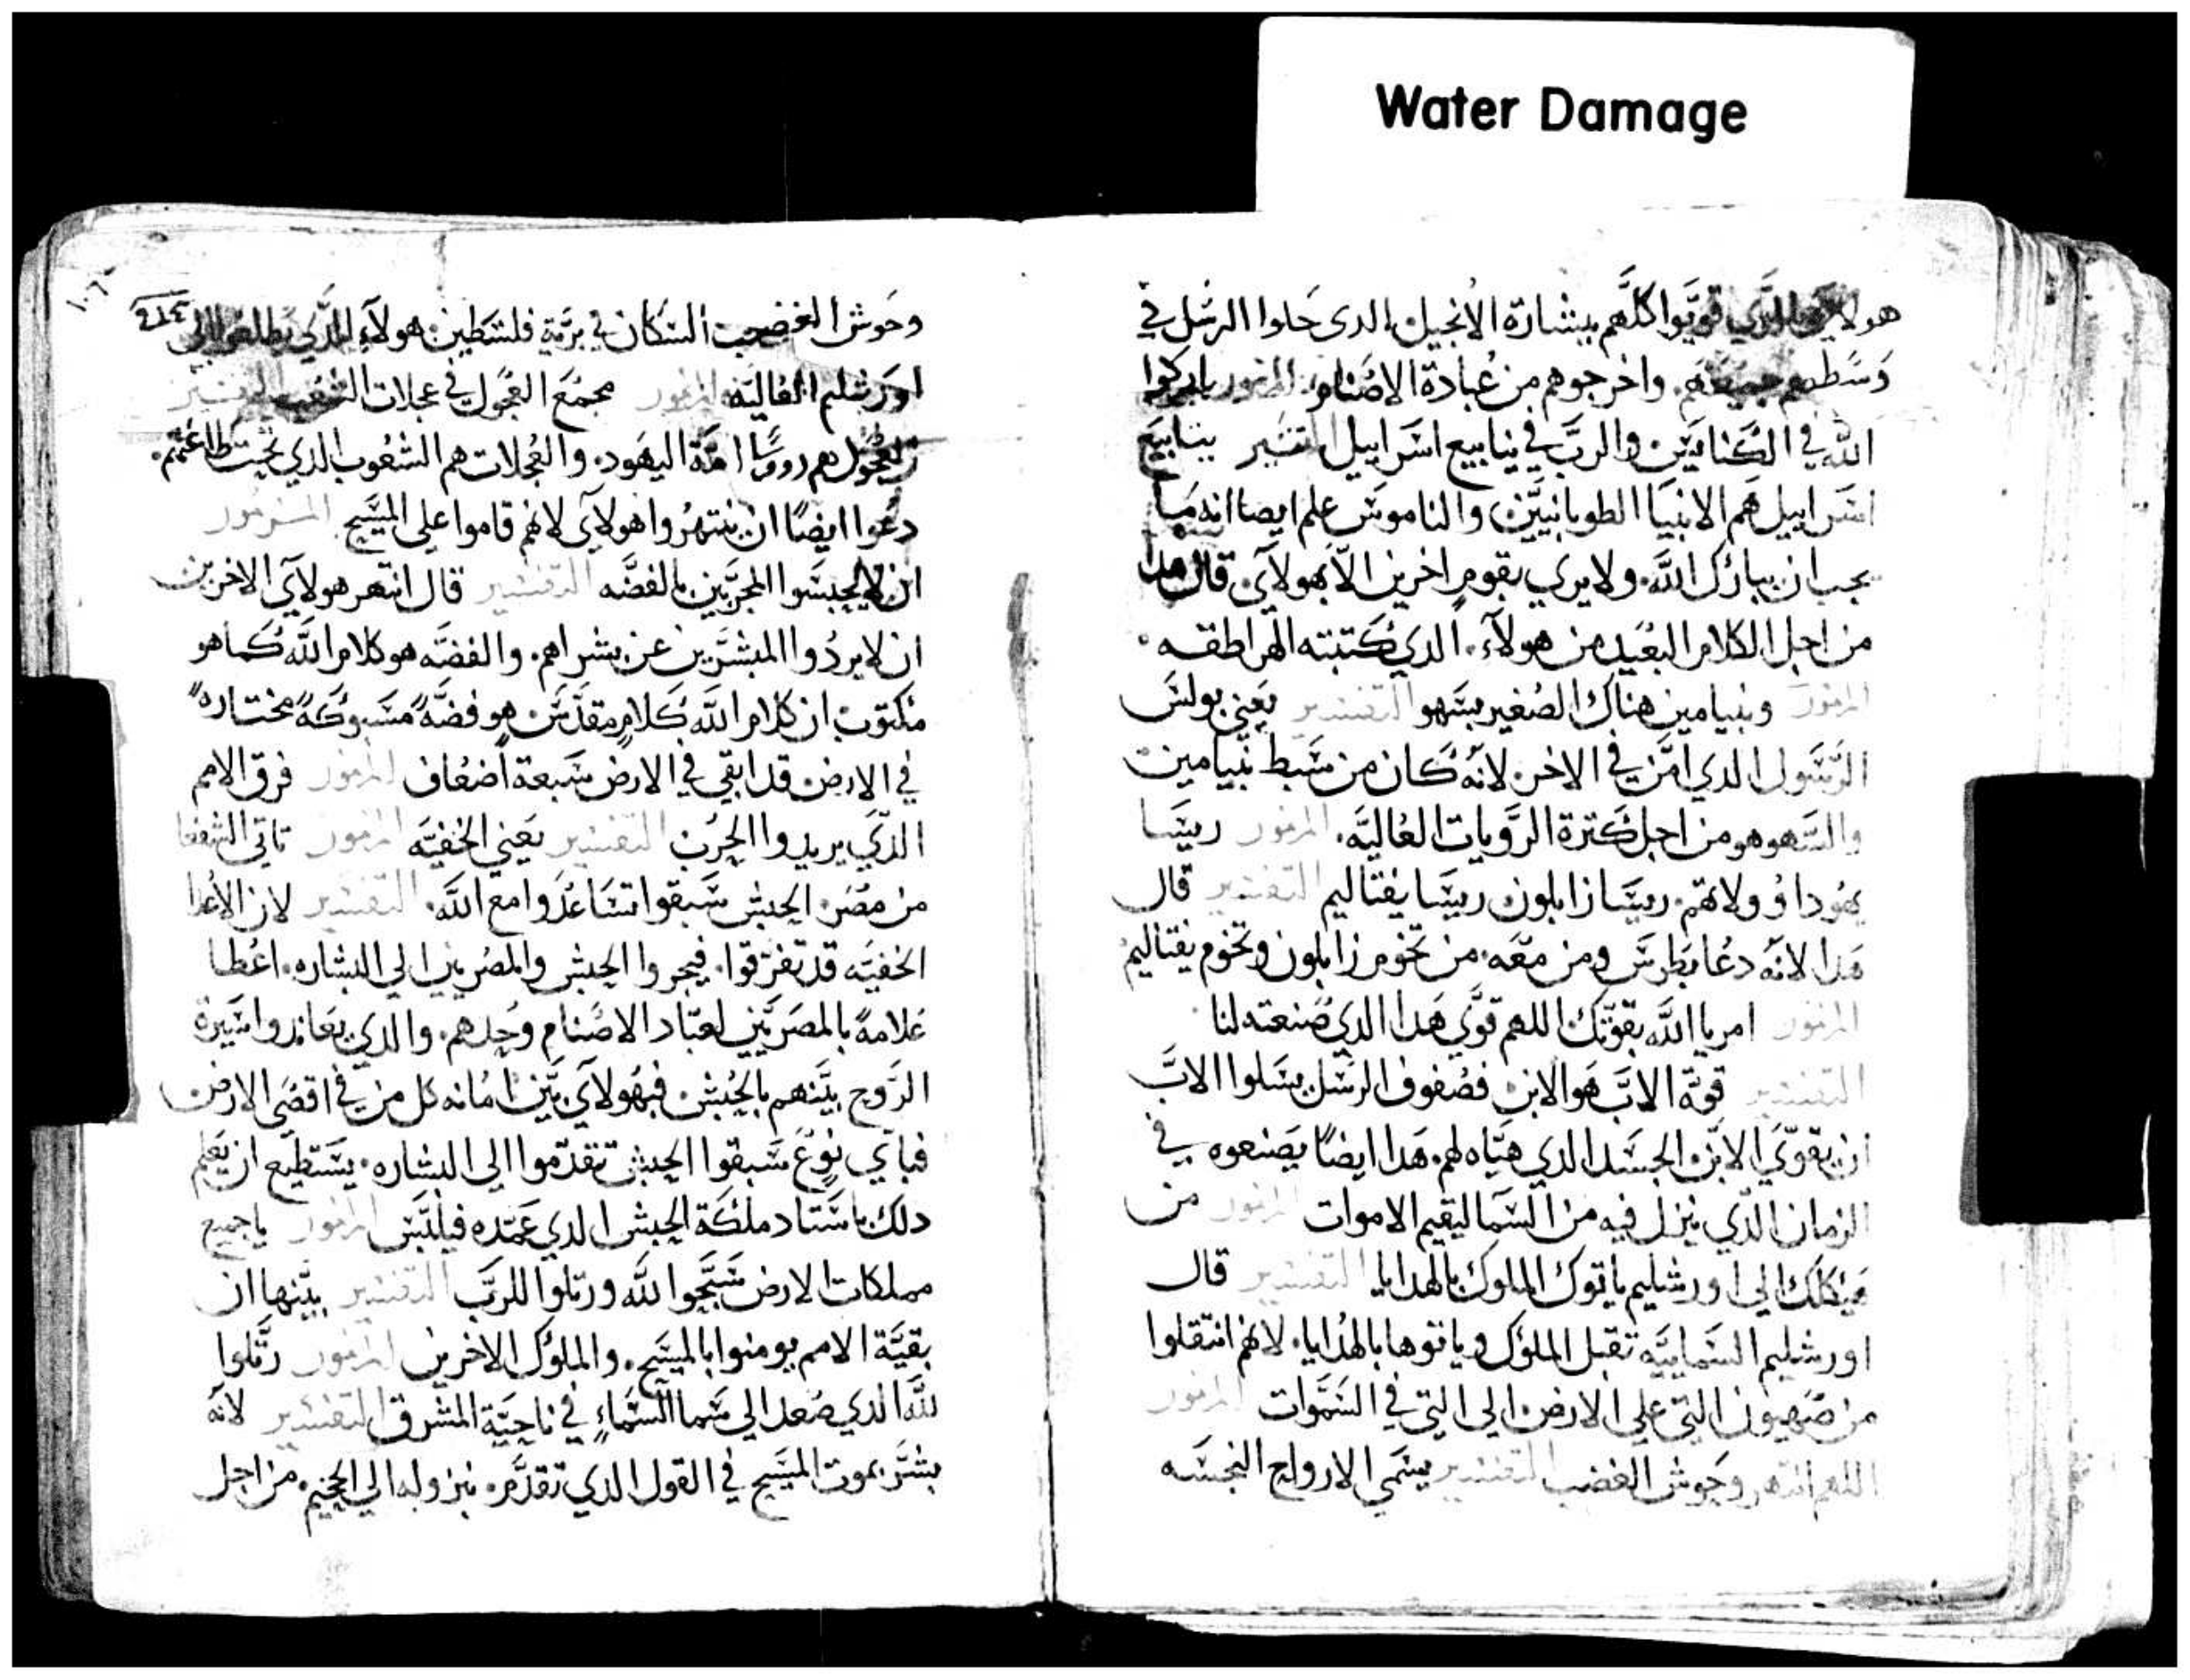 Water Damage
هولاي الدي قويوا كلهم ببشارة الانجيل الدى حلوا الرسل في
وسطهم جميعهم واخرجوهم من عبادة الاصنام المزمور باركوا
الله في الكنايس والرب في ينابيع اسراييل التفسير ينابيع
اسراييل هم الانبيا الطوبانيين والناموس علم ايضا انه ما
يجب ان يبارك الله ولا يرى بقوم اخرين الا بهولاي قال هدا
من اجل الكلام البعيد من هولاء الدي كتبته الهراطقه
المزمور وبنيامين هناك الصغير بسهو التفسير يعني بولس
الرسول الدي امن في الاخر لانه كان من سبط بنيامين
والسهو هو من اجل كترة الرويات العاليه المزمور ريسا
يهودا وولاتهم ريسا زابلون ريسا يفتاليم التفسير قال
هدا لانه دعا بطرس ومن معه من تخوم زابلون وتخوم يفتاليم
المزمور امر يا الله بقوتك اللهم قوي هدا الدي صنعته لنا
التفسير قوة الاب هو الابن فصفوف الرسل يسلوا الاب
ان يقوي الابن الجسد الدي هياه لهم هدا ايضا يصنعوه في
الزمان الدي ينزل فيه من السما ليقيم الاموات المزمور من
هيكلك الي اورشليم ياتوك الملوك بالهدايا التفسير قال
اورشليم السماييه تقبل الملوك وياتوها بالهدايا لانهم انتقلوا
من صهيون التي على الارض الي التي في السموات المزمور
اللهم انتهر وحوش الغضب التفسير يسمي الارواح النجسه
١٠٦
وحوش الغضب السكان في برية فلسطين هولاء الدي يطلعوا الي
اورشليم العاليه المزمور مجمع العجول في عجلات الشعوب التفسير
العجول هم روسا امة اليهود والعجلات هم الشعوب الدي تحت طاعتهم
دعوا ايضا ان ينتهروا هولاي لانهم قاموا علي المسيح المزمور
ان لا يحبسوا المجربين بالفضه التفسير قال انتهر هولاي الاخرين
ان لا يردوا المبشرين عن بشراهم والفضه هو كلام الله كما هو
مكتوب ان كلام الله كلام مقدس هو فضة مسبوكة مختاره
في الارض قد ابقي في الارض سبعة اضعاف المزمور فرق الامم
الدي يريدوا الحرب التفسير يعني الخفيه المزمور تاتي الشفعا
من مصر الحبش سبقوا تساعدوا مع الله التفسير لان الاعدا
الخفيه قد تفرقوا فيجروا الحبش والمصريين الي البشاره اعطا
علامة بالمصريين لعباد الاصنام وحدهم والدي يعاندوا سيرة
الروح بينهم بالحبش فبهولاي بين امانه كل من في اقصى الارض
فباي نوع سبقوا الحبش تقدموا الي البشاره يستطيع ان يعلم
دلك باستاد ملكة الحبش الدي عمده فيلبس المزمور يا جميع
مملكات الارض سبحوا الله ورتلوا للرب التفسير بينها ان
بقية الامم يومنوا بالمسيح والملوك الاخرين المزمور رتلوا
لله الدي صعد الي سما السماء في ناحية المشرق التفسير لانه
بشر بموت المسيح في القول الدي تقدم نزوله الي الجحيم من اجل